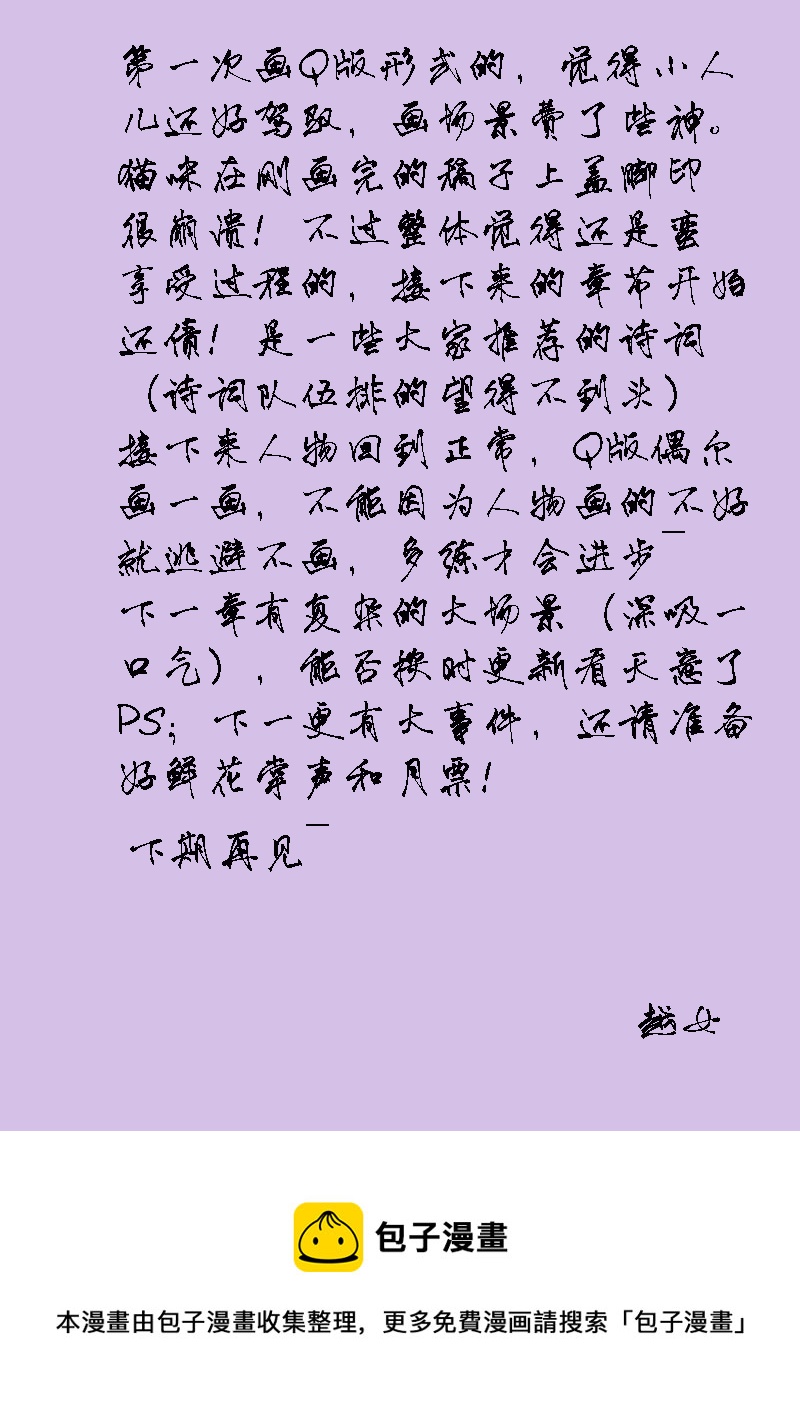 第一次画Q版形式的，觉得小人
儿还好驾驭，画场景费了些神。
猫咪在刚画完的稿子上盖脚印
很崩溃！不过整体觉得还是蛮
享受过程的，接下来的章节开始
还债！是一些大家推荐的诗词
（诗词队伍排的望得不到头）
接下来人物回到正常，Q版偶尔
画一画，不能因为人物画的不好
就逃避不画，多练才会进步¯
下一章有复杂的大场景（深吸一
口气），能否按时更新看天意了
PS；下一更有大事件，还请准备
好鲜花掌声和月票！
下期再见¯
越女
包子漫畫
本漫畫由包子漫畫收集整理，更多免費漫画請搜索「包子漫畫」